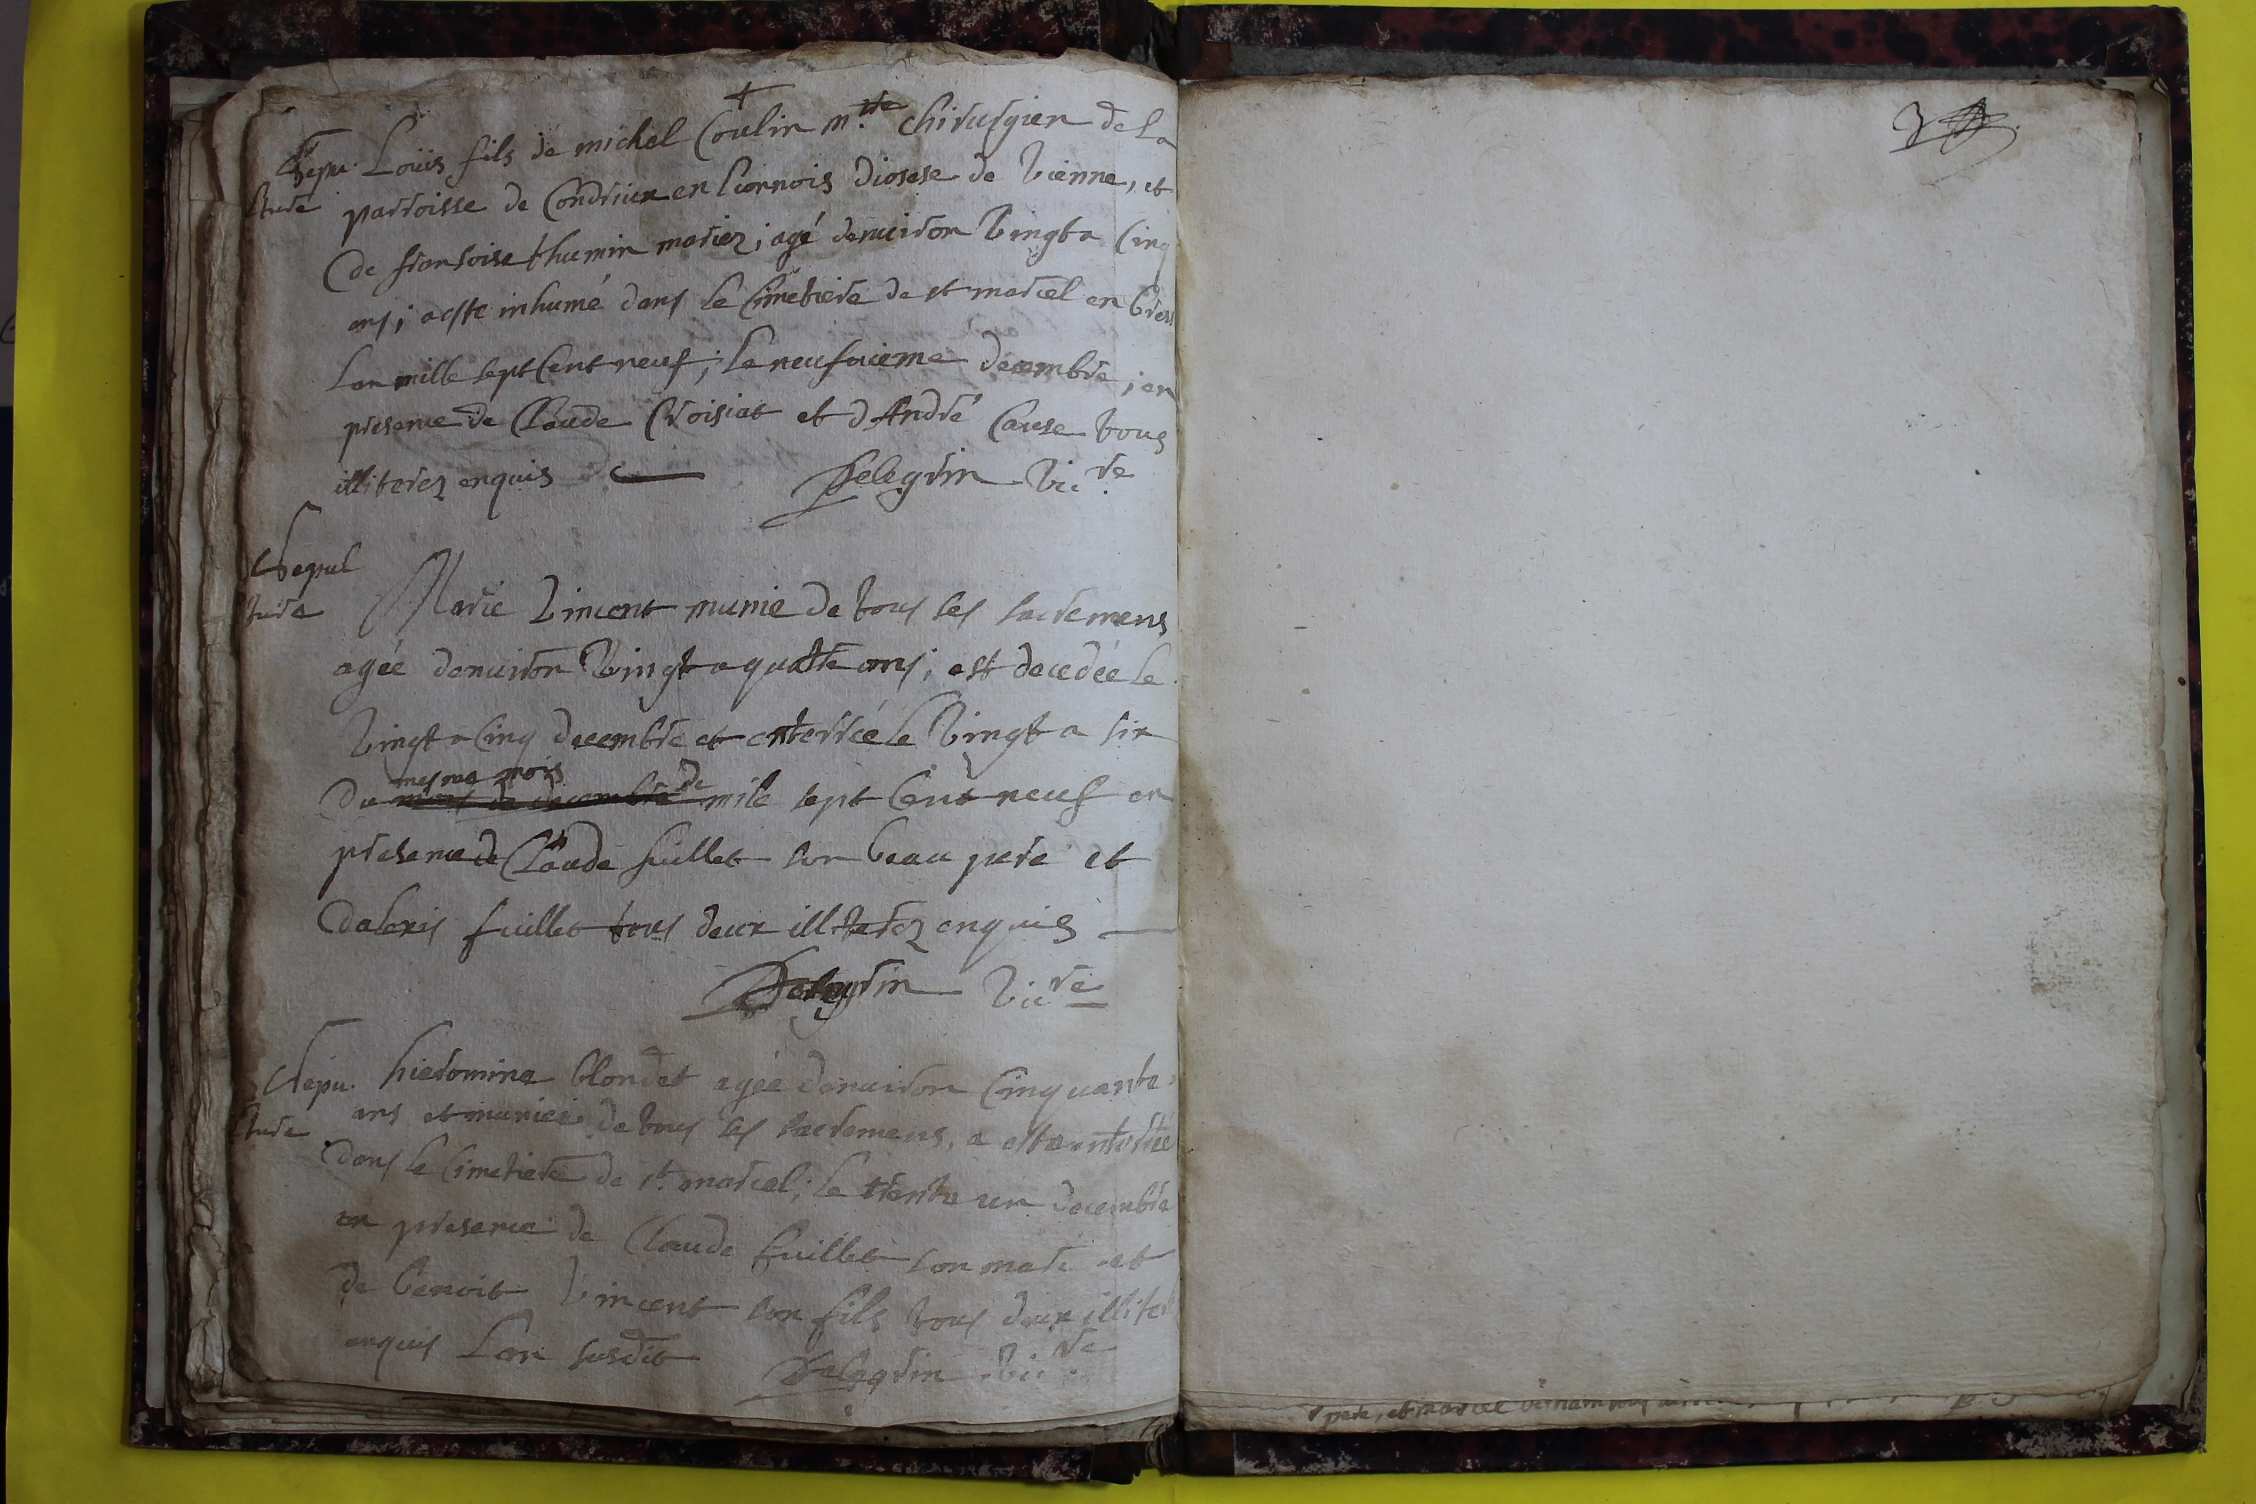 +
Sepu. Loüis fils de michel Coulin m.tre chirurgien de La
lture parroisse de Condrieu en Lionnois diosese de Vienne, et
de fransoise thumin mariez ; agé denuiron Vingt a Cinq
ans ; a este inhumé dans le Cimetiere de st marcel en bress
Lan mille sept Cent neuf ; le neufuieme decembre ; en
presence de Claude Croisiat et d'André Cause tous
illiterez enquis Pelegrin Vic.re
Sepul
ture Marie Vincent munie de tous les sacremens
agée denuiron Vingt a quatre ans ; est decedée le
Vingt a Cinq decembre et enterrée le Vingt a six
mesme mois de
du mois de decembre mile sept Cent neuf en
presence de Claude fuillet son beau pere et
dalexis fuillet tous deux illiterez enquis
Pelegrin Vic.re
Sepu. hieromine blondet agée denuiron Cinquante
lture ans et muniée de tous les sacremens, a este enterrée
dans le Cimetiere de st. marcel ; le trente un decembre
en presence de Claude fuillet son mari et
de benoit Vincent son fils tous deux illiter
enquis Lan susdit Pelegrin Vic.re
pere, et marcel